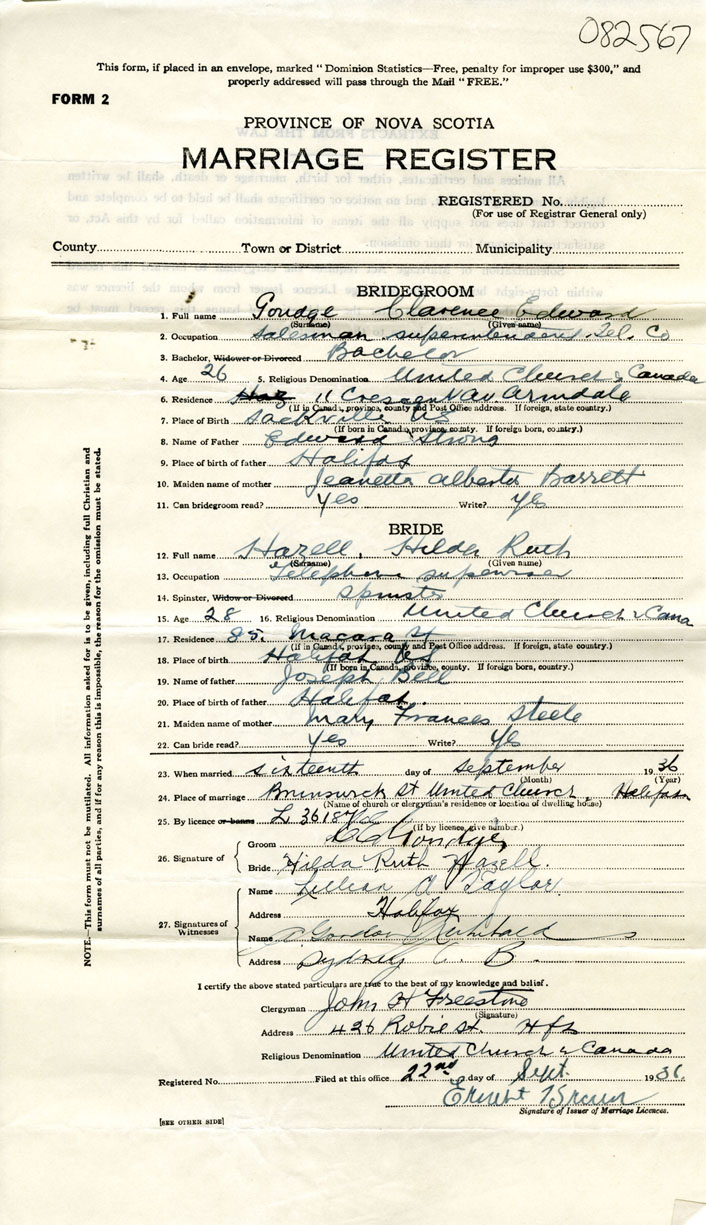 082567
This form, if placed in an envelope, marked "Dominion Statistics—Free, penalty for improper use $300," and
properly addressed will pass through the Mail "FREE."
FORM 2
PROVINCE OF NOVA SCOTIA
MARRIAGE REGISTER
REGISTERED No.
(For use of Registrar General only)
County Town or District Municipality
BRIDEGROOM
1. Full name Goudge Clarence Edward
(Surname) (Given name)
2. Occupation Salesman superintendent Tel. Co
3. Bachelor, Widower or Divorced Bachelor
4. Age 26 5. Religious Denomination United Church of Canada
6. Residence 11 Crescent Av Armdale
(If in Canada, province, county and Post Office address. If foreign, state country.)
7. Place of Birth Sackville NS
(If born in Canada, province, county. If foreign born, country.)
8. Name of Father Edward Strong
9. Place of birth of father Halifax
10. Maiden name of mother Jeanetta Alberta Barrett
11. Can bridegroom read? Yes Write? Yes
BRIDE
12. Full name Hazell, Hilda Ruth
(Surname) (Given name)
13. Occupation Telephone supervisor
14. Spinster, Widow or Divorced Spinster
15. Age 28 16. Religious Denomination United Church of Cana
17. Residence 25. Macara St
(If in Canada, province, county and Post Office address. If foreign, state country.)
18. Place of birth Halifax NS
(If born in Canada, province, county. If foreign born, country.)
19. Name of father Joseph Bell
20. Place of birth of father Halifax.
21. Maiden name of mother Mary Frances Steele
22. Can bride read? Yes Write? Yes
23. When married sixteenth day of September 1936
(Month) (Year)
24. Place of marriage Brunswick St United Church, Halifax
(Name of church or clergyman's residence or location of dwelling house)
25. By licence or banns L 36187
(If by licence, give number.)
26. Signature of Groom C E Goudge
Bride Hilda Ruth Hazell.
27. Signatures of Witnesses
Name Lillian A Taylor
Address Halifax
Name Gordon Archibald
Address Sydney C. B.
I certify the above stated particulars are true to the best of my knowledge and belief.
Clergyman John H Freestone
(Signature)
Address 426 Robie St. Hfx
Religious Denomination United Church of Canada
Registered No. Filed at this office 22nd day of Sept. 1936.
Ernest Brown
Signature of Issuer of Marriage Licences.
[SEE OTHER SIDE]
NOTE.—This form must not be mutilated. All information asked for is to be given, including full Christian and
surnames of all parties, and if for any reason this is impossible, the reason for the omission must be stated.